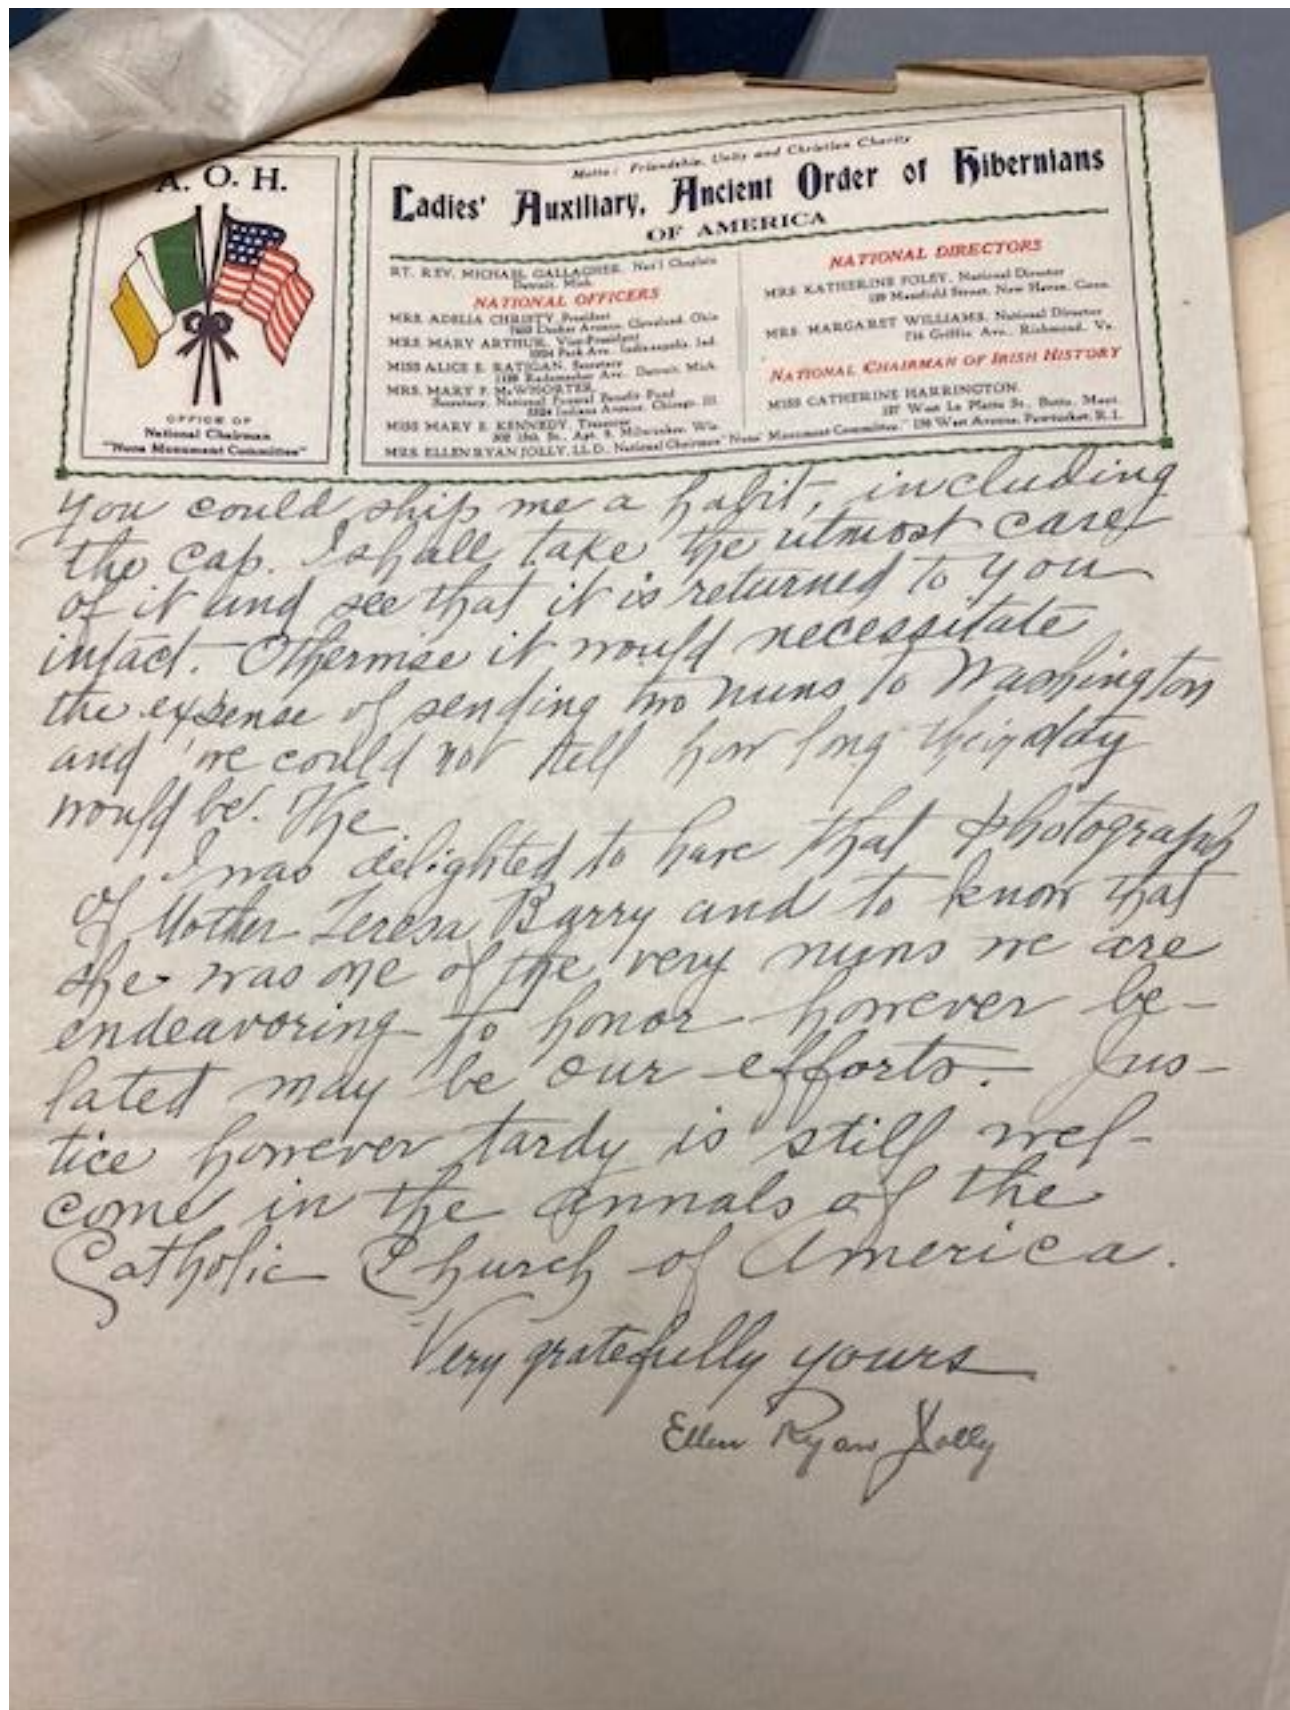 A. O. H.
OFFICE OF
National Chairman
"Nuns Monument Committee"
Motto: Friendship, Unity and Christian Charity
Ladies' Auxiliary, Ancient Order of Hibernians
OF AMERICA
RT. REV. MICHAEL GALLAGHER, Nat'l Chaplain
Detroit, Mich.
NATIONAL OFFICERS
MRS. ADELIA CHRISTY, President
Avenue, Cleveland, Ohio
MRS. MARY ARTHUR, Vice-President
Park Ave., Indianapolis, Ind.
MISS ALICE E. RATIGAN, Secretary
Ave., Detroit, Mich.
MRS. MARY F. McWHORTER,
Secretary, National Funeral Benefit Fund
Indiana Avenue, Chicago, Ill.
MISS MARY E. KENNEDY, Treasurer
St., Apt. Milwaukee, Wis.
MRS. ELLEN RYAN JOLLY, LL.D., National Chairman "Nuns' Monument Committee," West Avenue, Pawtucket, R. I.
NATIONAL DIRECTORS
MRS. KATHERINE FOLEY, National Director
Mansfield Street, New Haven, Conn.
MRS. MARGARET WILLIAMS, National Director
Griffin Ave., Richmond, Va.
NATIONAL CHAIRMAN OF IRISH HISTORY
MISS CATHERINE HARRINGTON,
West La Platte St., Butte, Mont.
you could ship me a habit, including
the cap. I shall take the utmost care
of it and see that it is returned to you
intact. Otherwise it would necessitate
the expense of sending two nuns to Washington
and we could not tell how long their
would be. The
I was delighted to have that photograph
of Mother Teresa Barry and to know that
she was one of the very nuns we are
endeavoring to honor however be-
lated may be our efforts. Jus-
tice however tardy is still wel-
come in the annals of the
Catholic Church of America.
Very gratefully yours
Ellen Ryan Jolly